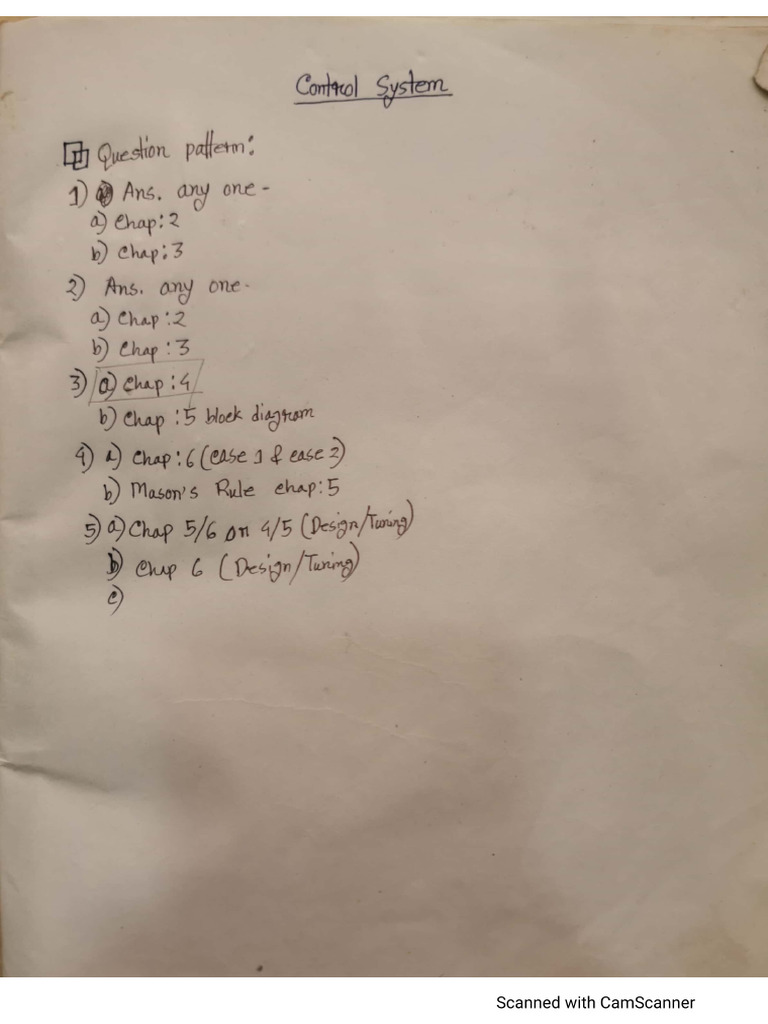 Control System
Question pattern:
1) Ans. any one-
a) Chap:2
b) Chap:3
2) Ans. any one-
a) Chap:2
b) Chap:3
3) a) Chap:4
b) Chap:5 block diagram
4) a) Chap:6 (case 1 & case 2)
b) Mason's Rule chap:5
5) a) Chap 5/6 or 4/5 (Design/Tuning)
b) Chap 6 (Design/Tuning)
c)
Scanned with CamScanner